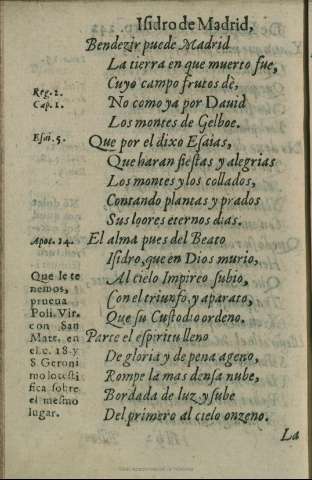 Isidro de Madrid,
Bendezir puede Madrid
La tierra en que muerto fue,
Cuyo campo frutos dè,
Reg. 2.
Cap. 1.
No como ya por Dauid
Los montes de Gelboe.
Esai. 5.
Que por el dixo Esaias,
Que haran fiestas y alegrias
Los montes y los collados,
Contando plantas y prados
Sus loores eternos dias.
Apoc. 14.
El alma pues del Beato
Isidro, que en Dios murio,
Al cielo Impireo subio,
Con el triunfo, y aparato,
Que su Custodio ordeno.
Que le te
nemos,
prueua
Poli. Vir.
con San
Mate. en
el c. 18. y
S. Geroni
mo lo testi
fica sobre
el mesmo
lugar.
Parte el espiritu lleno
De gloria y de pena ageno,
Rompe la mas densa nube,
Bordada de luz y sube
Del primero al cielo onzeno.
La